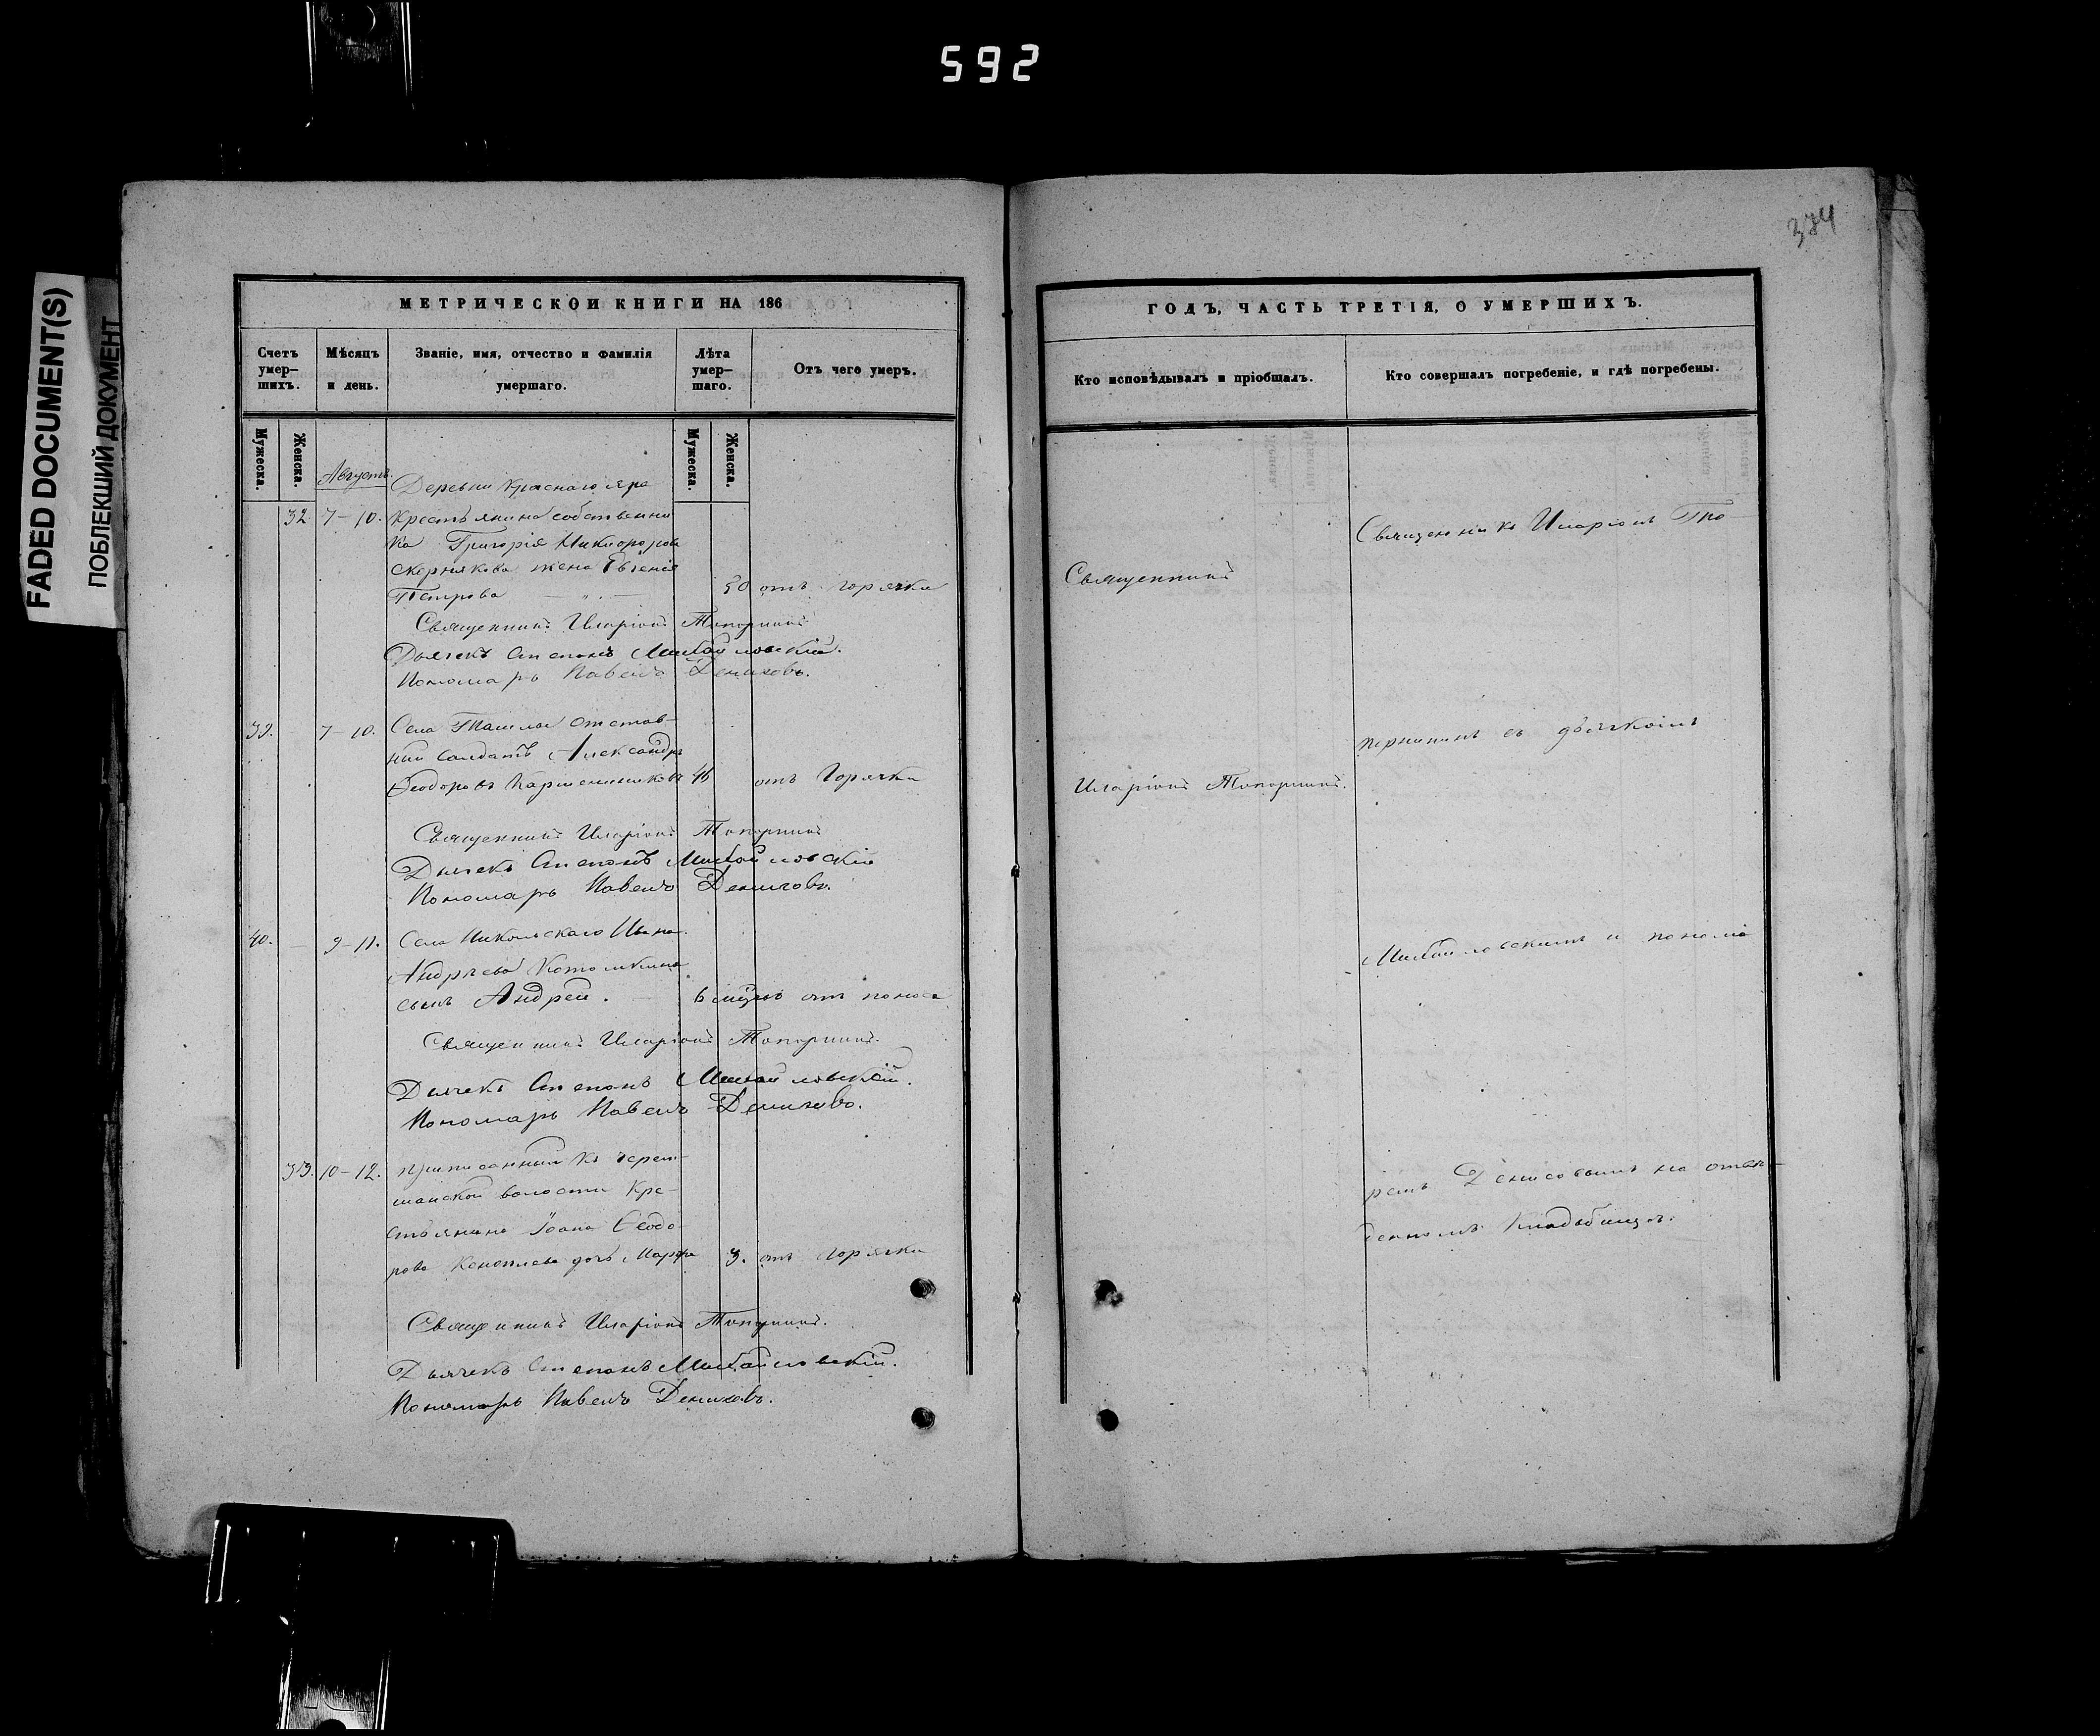 592
FADED DOCUMENT(S)
ПОБЛЕКШИЙ ДОКУМЕНТ
374
МЕТРИЧЕСКОИ КНИГИ НА 186
Счетъ умер–шихъ.
Мѣсяцъ и день.
Званіе, имя, отчество и фамилія умершаго.
Лѣта умер–шаго.
Отъ чего умеръ.
Мужеска.
Женска.
Мужеска.
Женска.
Августъ.
Деревни Краснаго яра
32 7–10. Крестьянина собственни
ка Григорія Никифорова
Скорнякова жена Евгенія
Петрова 50 отъ горячки
Священникъ Иларіонъ Топорнинъ
Дьячекъ Степанъ Михайловскій.
Пономарь Павелъ Денисовъ.
39. 7–10. Села Ташлы отстав–
ный солдатъ Александръ
Ѳеодоровъ 46 отъ Горячки
Священникъ Иларіонъ Топорнинъ
Дьячекъ Степанъ Михайловскій
Пономарь Павелъ Денисовъ.
40. 9–11. Села Никольскаго Ивана
Андреева Котомкина
сынъ Андрей. 6 отъ поноса
Священникъ Иларіонъ Топорнинъ.
Дьячекъ Степанъ Михайловскій.
Пономарь Павелъ Денисовъ.
33. 10–12. Приписаннаго къ Черем–
шанской волости Кре–
стьянина Іоана Ѳеодо–
рова дочь Марфа 3. отъ горячки
Священникъ Иларіонъ Топорнинъ.
Дьячекъ Степанъ Михайловскій.
Пономарь Павелъ Денисовъ.
ГОДЪ, ЧАСТЬ ТРЕТІЯ, О УМЕРШИХЪ.
Кто исповѣдывалъ и пріобщалъ.
Кто совершалъ погребеніе, и гдѣ погребены.
Священникъ
Иларіонъ Топорнинъ.
Священникъ Иларіонъ То–
порнинъ съ дьячкомъ
Михайловскимъ и понома
ремъ Денисовымъ на отве–
денномъ кладбищѣ.